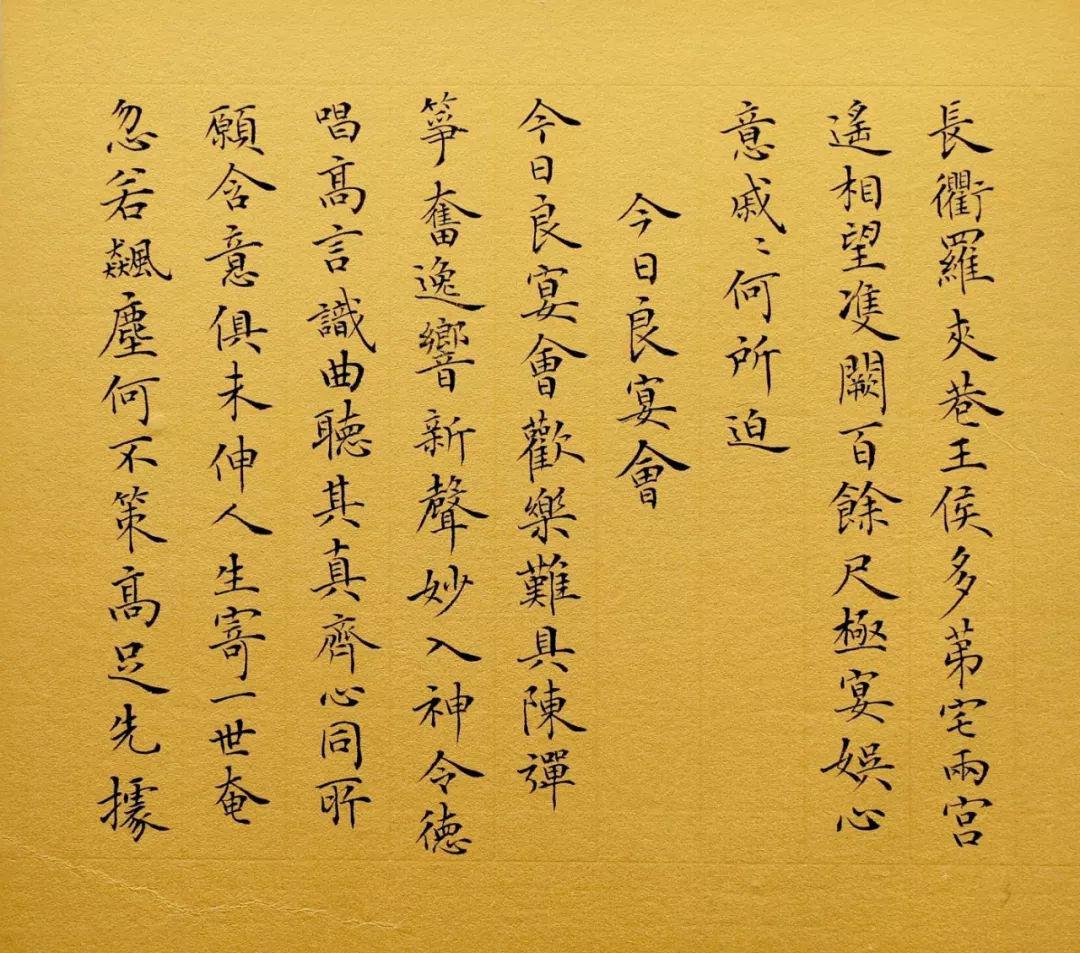 長衢羅夾巷王侯多苐宅兩宮
遙相望雙闕百餘尺極宴娛心
意戚〻何所迫
今日良宴會
今日良宴會歡樂難具陳彈
箏奮逸響新聲妙入神令德
唱高言識曲聽其真齊心同所
願含意俱未伸人生寄一世奄
忽若飆塵何不策高足先據